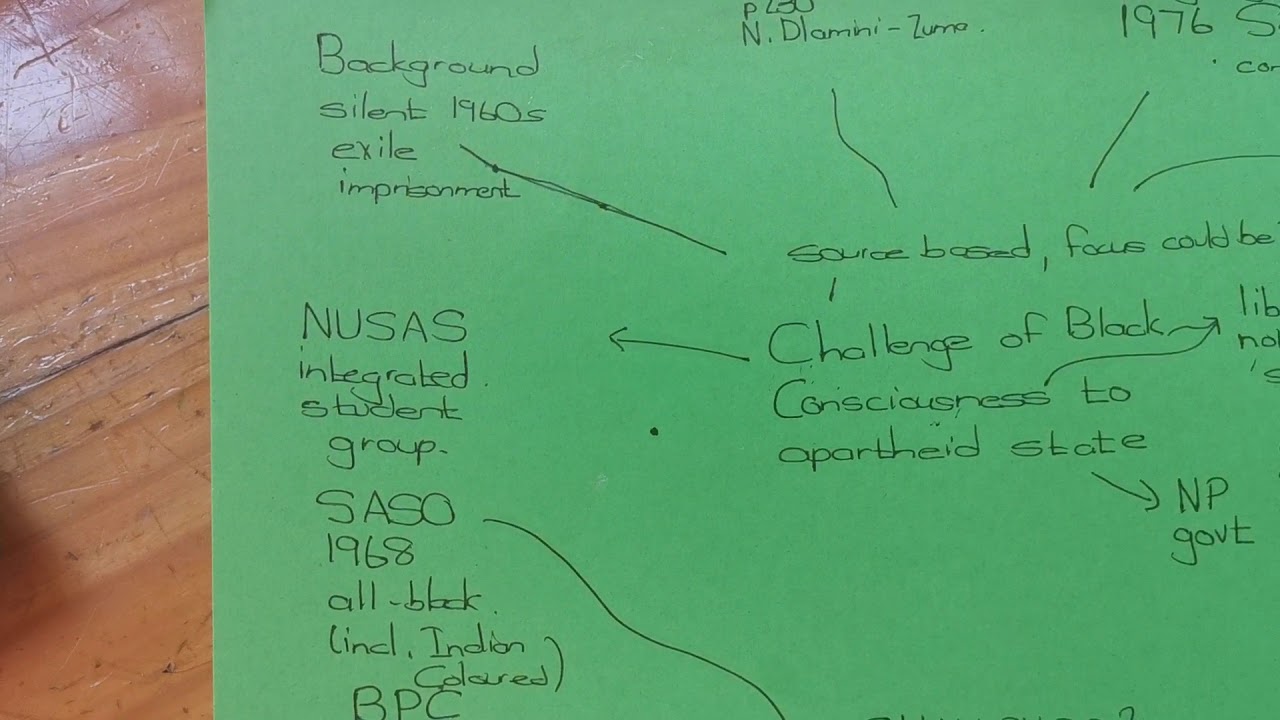 N. Dlamini-Zuma.
1976
Background
silent 1960s
exile
imprisonment
source based, focus could be
NUSAS
integrated.
student
group.
Challenge of Black
Consciousness to
apartheid state
NP
govt
SASO
1968
all-black.
(incl. Indian
Coloured)
BPC